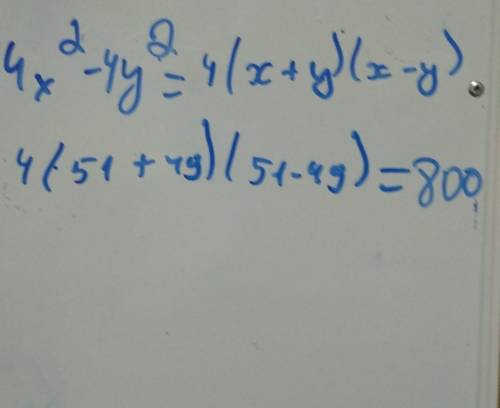 4x² - 4y² = 4(x + y)(x - y)
4(51 + 49)(51 - 49) = 800